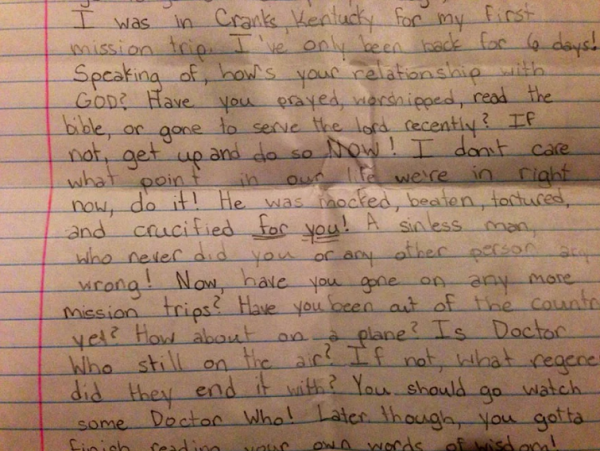 I was in Cranks, Kentucky for my first
mission trip. I've only been back for 6 days!
Speaking of, how's your relationship with
GOD? Have you prayed, worshipped, read the
bible, or gone to serve the lord recently? If
not, get up and do so NOW! I don't care
what point in our life we're in right
now, do it! He was mocked, beaten, tortured,
and crucified for you! A sinless man,
who never did you or any other person any
wrong! Now, have you gone on any more
mission trips? Have you been out of the countr
yet? How about on a plane? Is Doctor
Who still on the air? If not, what regene
did they end it with? You should go watch
some Doctor Who! Later though, you gotta
finish reading your own words of wisdom!